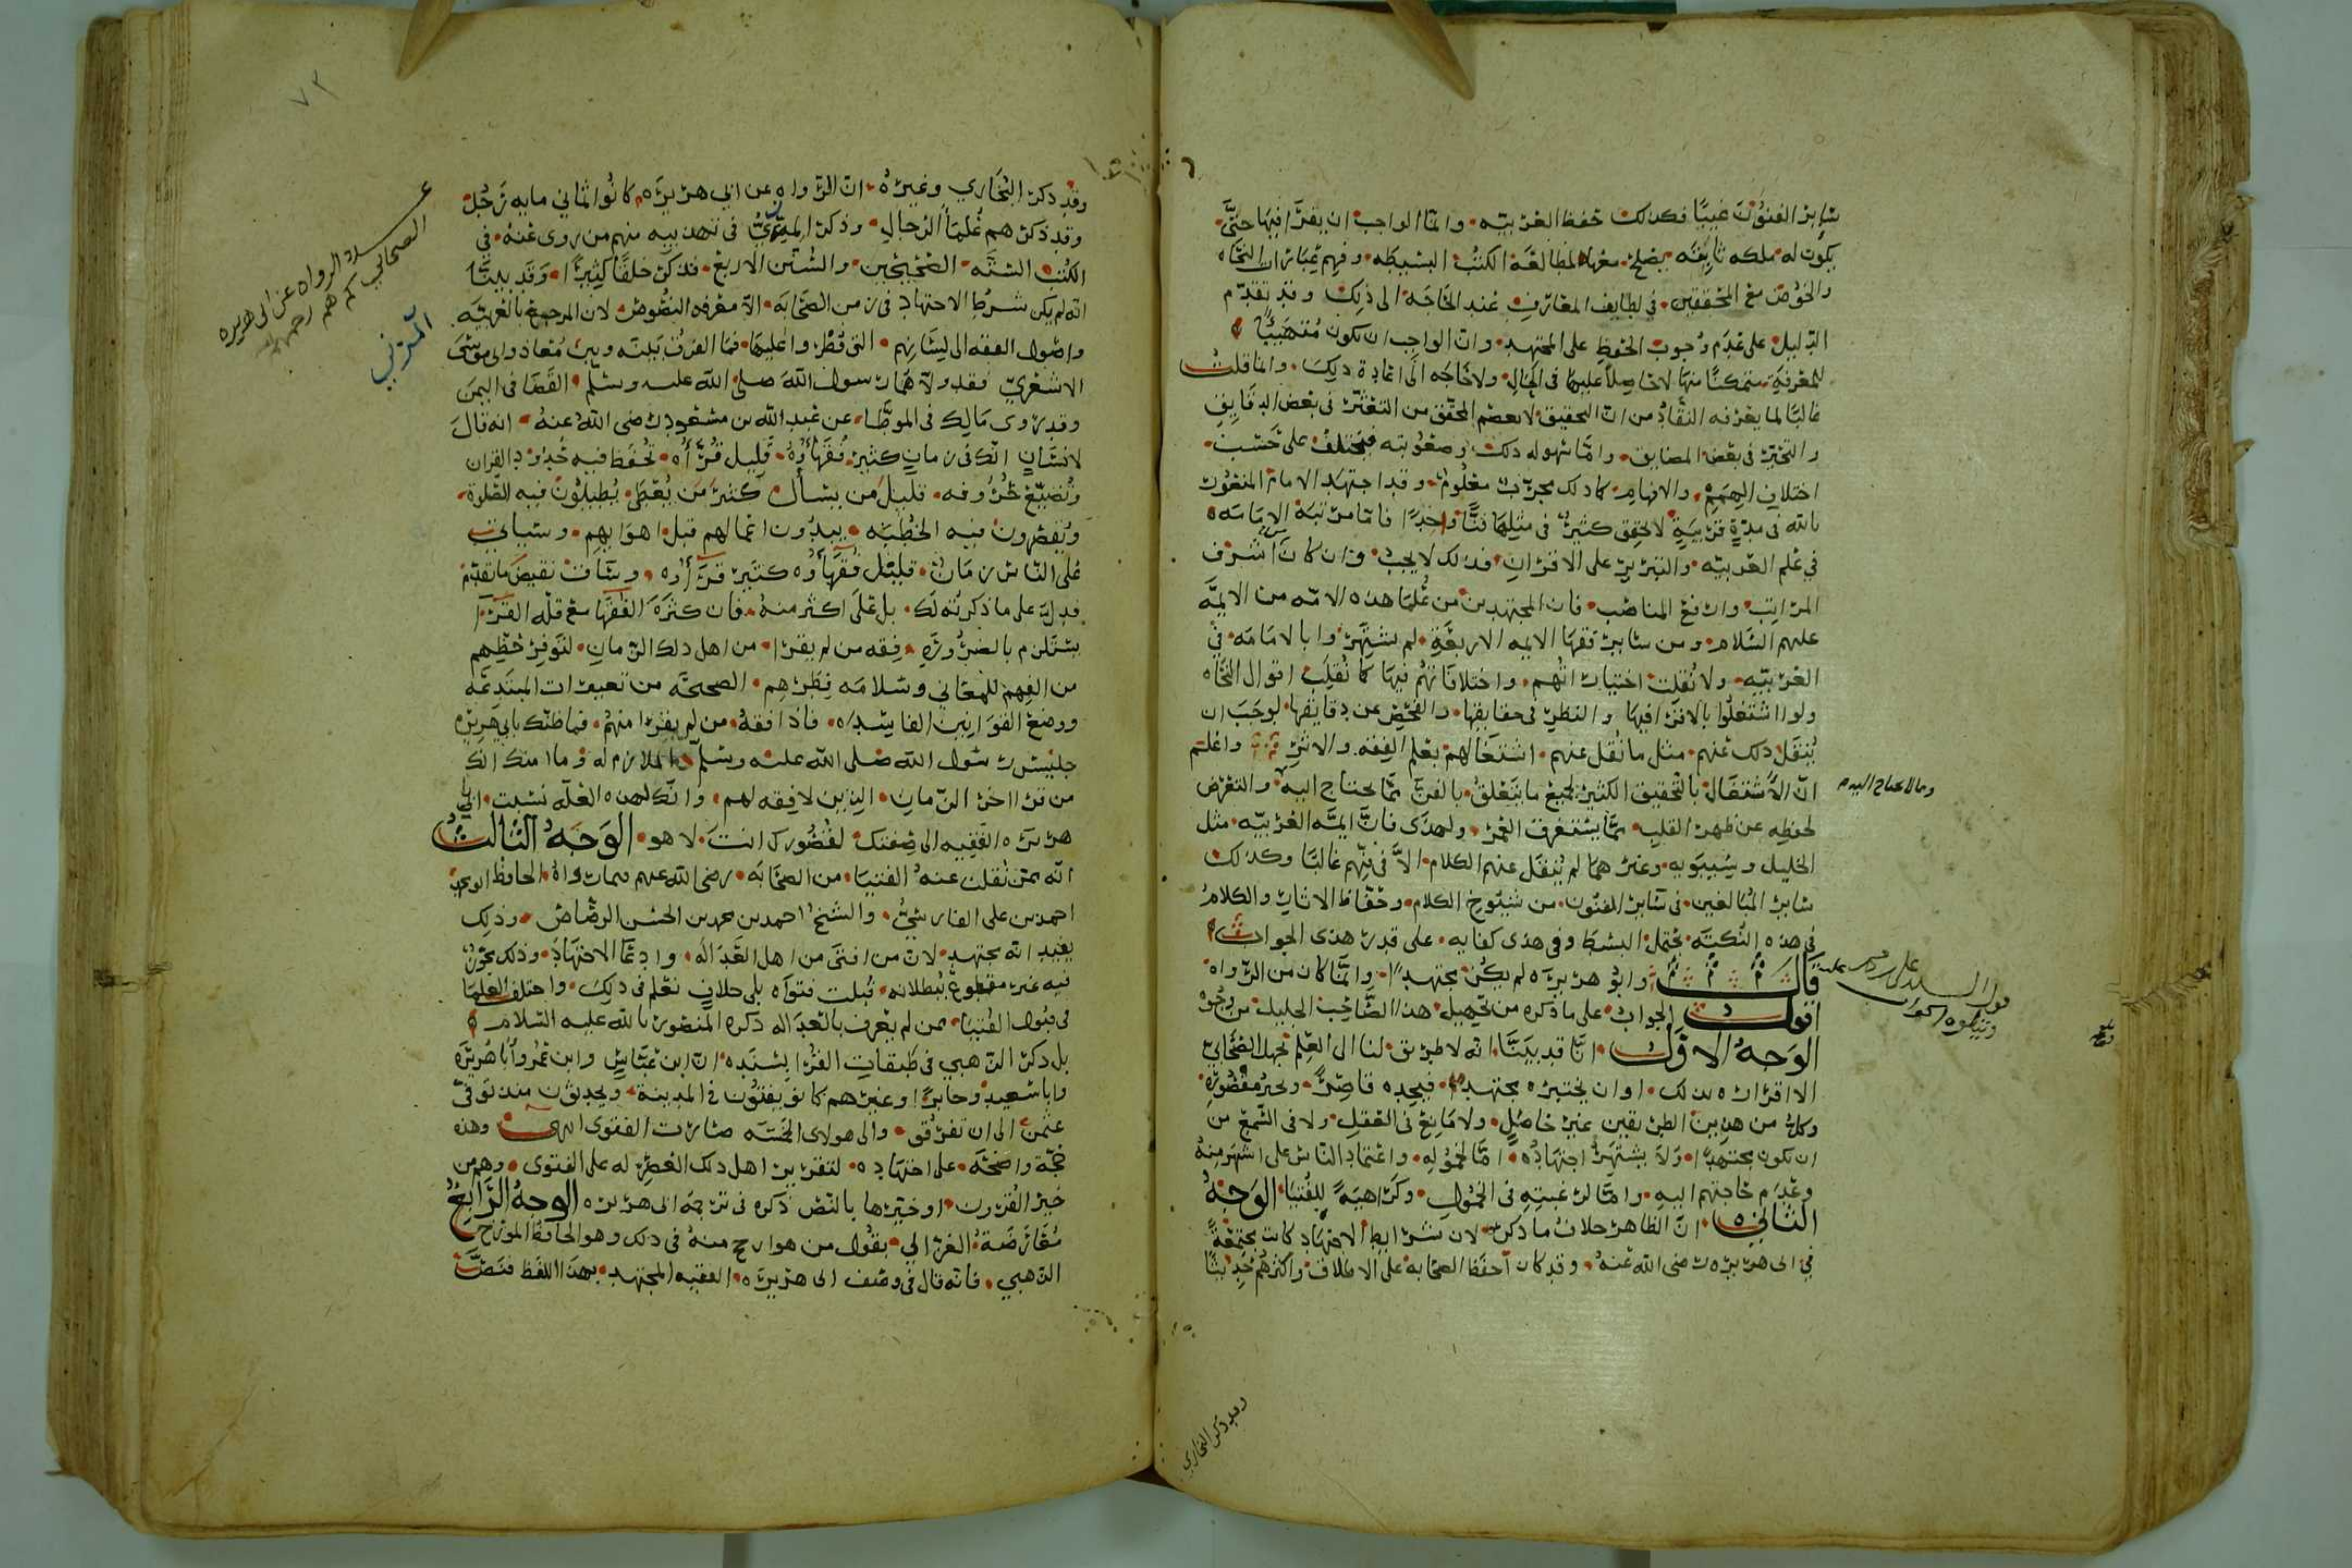 ساير الفنون غيبًا فكذلك حفظ العربيه وانما الواجب ان يقرا فيها حتى
يكون له ملكه ثابته يصلح معها لمطالعة الكتب البسيطه وفهم عبارات النحاه
والخوض مع المحققين في لطايف المعارف عند الحاجه الى ذلك وقد تقدم
الدليل على عدم وجوب الحفظ على المجتهد وان الواجب ان يكون متهيئًا
للمعرفة متمكنًا منها لا حاصلًا عليها في الحال ولا حاجه الى اعادة ذلك وانما قلت
غالبًا لما يعرفه النقاد من ان التحقيق لا يعصم المحقق من التعثر في بعض الدقايق
والتحير في بعض المضايق واما سهوله ذلك وصعوبته فيختلف على حسب
اختلاف الهمم والافهام كما ذلك مجرب معلوم وقد اجتهد الامام المنصور
بالله في مدة قريبة لا يحقق كثير في مثلها فنًا واحدًا فاما مرتبة الامامه
في علم العربيه والتبريز على الاقران فذلك لا يجب وان كان اشرف
المراتب وارفع المناصب فان المجتهدين من علما هذه الامه من الايمه
عليهم السلام ومن ساير فقها الايمه الاربعة لم يشتهروا بالامامه في
العربيه ولا نقلت اختياراتهم واختلافاتهم فيها كما نقلت اقوال النحاه
ولو اشتغلوا بالاقرا فيها والنظر في حقايقها والفحص عن دقايقها لوجب ان
ينقل ذلك عنهم مثل ما نقل عنهم اشتغالهم بعلم الفقه والاثر واعلم
ان الاشتغال بالتحقيق الكثير لجميع ما يتعلق بالفن مما يحتاج اليه والتعرض
لحفظه عن ظهر القلب مما يستغرق العمر ولهذى فان ايمة العربيه مثل
الخليل وسيبويه وغيرهما لم ينقل عنهم الكلام الا في فنهم غالبًا وكذلك
ساير المبالغين في ساير الفنون من شيوخ الكلام وحفاظ الاثار والكلام
في هذه النكته يحتمل البسط وفي هذى كفايه على قدر هذى الجواب
قال وابو هريره لم يكن مجتهدًا وانما كان من الرواه
اقول الجواب على ما ذكره من تجهيل هذا الصاحب الجليل من وجوه
الوجه الاول انا قد بينا انه لا طريق لنا الى العلم بجهل الصحابي
الا اقراره بذلك او ان يختبره مجتهد فيجده قاصرًا
وكل من هذين الطريقين غير حاصل ولا مانع في العقل ولا في السمع من
ان يكون مجتهدًا ولا يشتهر اجتهاده اما لخموله واعتماد الناس على اشهر منه
وعدم حاجتهم اليه واما لرغبته في الخمول وكراهية للفتيا الوجه
الثاني ان الظاهر خلاف ما ذكر لان شرايط الاجتهاد كانت مجتمعة
في ابي هريره رضي الله عنه وقد كان احفظ الصحابة على الاطلاق واكثرهم حديثًا
وما لا يحتاج اليه
وقد ذكر البخاري
٧٣
وقد ذكر البخاري وغيره ان الرواه عن ابي هريره كانوا ثماني مايه رجل
وقد ذكرهم علما الرجال وذكر المزي في تهذيبه منهم من روى عنه في
الكتب الستة الصحيحين والسنن الاربع فذكر خلقًا كثيرًا وقد بينا
انه لم يكن شرط الاجتهاد في زمن الصحابه الا معرفه النصوص لان المرجع بالعربيه
واصول الفقه الى لسانهم التي فطروا عليها فما الفرق بينه وبين معاذ وابي موسى
الاشعري فقد ولاهما رسول الله صلى الله عليه وسلم القضا في اليمن
وقد روى مالك في الموطا عن عبد الله بن مسعود رضي الله عنه انه قال
لانسان انك في زمان كثير فقهاؤه قليل قراؤه تحفظ فيه حدود القران
وتضيع حروفه قليل من يسأل كثير من يعطى يطيلون فيه الصلوة
ويقصرون فيه الخطبه يبدون اعمالهم قبل اهوايهم وسياتي
على الناس زمان قليل فقهاؤه كثير قراؤه وساق نقيض ما تقدم
فدل على ما ذكرته لك بل على اكثر منه فان كثرة الفقها مع قله القرا
يستلزم بالضرورة فقه من لم يقرا من اهل ذلك الزمان لتوفر حظهم
من الفهم للمعاني وسلامه فطرهم الصحيحه من تغييرات المبتدعه
ووضع القوانين الفاسده فاذا فقه من لم يقرا منهم فما ظنك بابي هريره
جليس رسول الله صلى الله عليه وسلم الملازم له وما ابرا انك
من قرا اخر الزمان الذين لا فقه لهم وانك لهذه العله نسبت ابا
هريره الفقيه الى صفتك لقصورك انت لا هو الوجه الثالث
انه ممن نقلت عنه الفتيا من الصحابه رضي الله عنهم فيما رواه الحافظ ابو محمد
احمد بن علي الفارسي والشيخ احمد بن محمد بن الحسن الرصاص وذلك
يفيد انه مجتهد لان من افتى من اهل العداله وادعا الاجتهاد وذلك مجوز
فيه غير مقطوع ببطلانه قبلت فتواه بلى خلاف نعلم في ذلك واختلف العلما
في قبول الفتيا ممن لم يعرف بالعداله ذكره المنصور بالله عليه السلام
بل ذكر الذهبي في طبقات القرا بسنده ان ابن عباس وابن عمر وابا هريرة
وابا سعيد وجابرًا وغيرهم كانو يفتون في المدينة ويحدثون منذ توفي
عثمن الى ان تفرقو والى هولاى الخمسه صارت الفتوى انتهى وهذه
حجة واضحة على اجتهاده لتقرير اهل ذلك العصر له على الفتوى وهم من
خير القرون او خيرها بالنص ذكره في ترجمة ابي هريره الوجه الرابع
معارضة الغزالي بقول من هو ارجح منه في ذلك وهو الحافظ المورخ
الذهبي فانه قال في وصف ابي هريره الفقيه المجتهد بهذا اللفظ فنص
الرواه عن ابي هريره
الصحابي كم هم
المزني